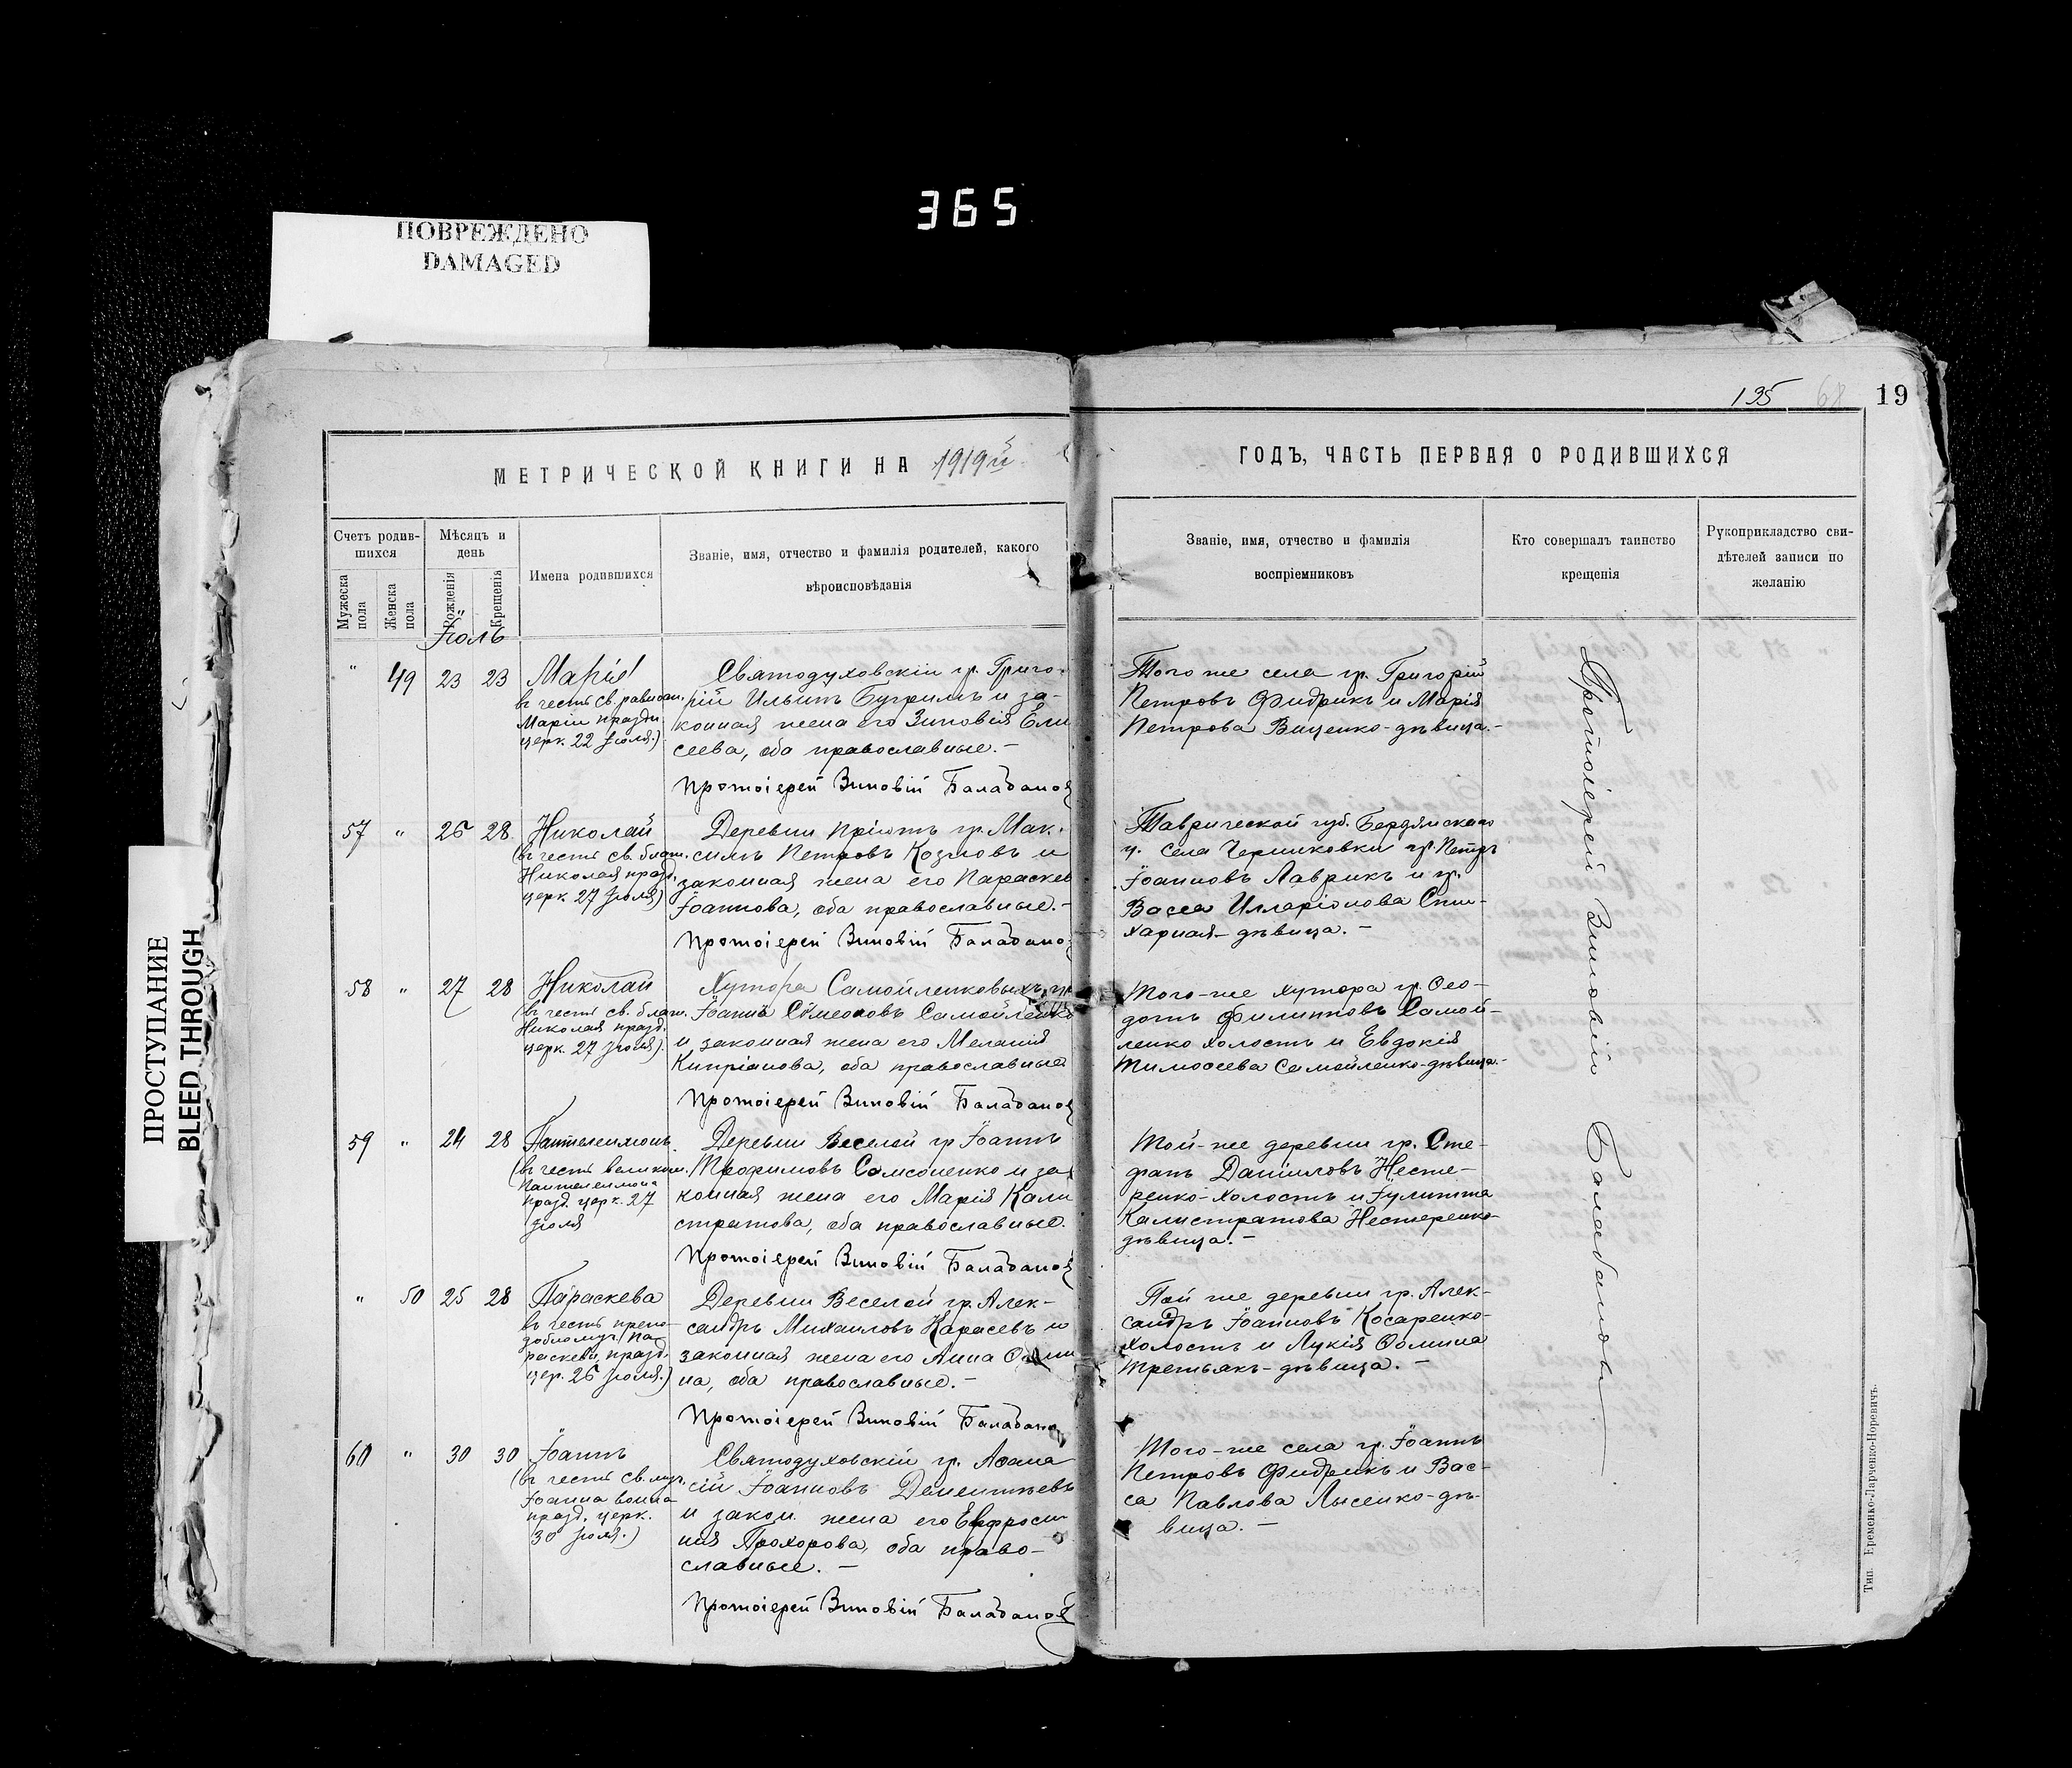 365
ПОВРЕЖДЕНО
DAMAGED
ПРОСТУПАНИЕ
BLEED THROUGH
135 68 19
МЕТРИЧЕСКОЙ КНИГИ НА 1919й
ГОДЪ, ЧАСТЬ ПЕРВАЯ О РОДИВШИХСЯ
Счетъ родив-
шихся
Мужеска
пола
Женска
пола
Мѣсяцъ и
день
Рожденія
Крещенія
Имена родившихся
Званіе, имя, отчество и фамилія родителей, какого
вѣроисповѣданія
Званіе, имя, отчество и фамилія
воспріемниковъ
Кто совершалъ таинство
крещенія
Рукоприкладство сви-
дѣтелей записи по
желанію
Іюль
" 49 23 23
Марія
въ честь св. равноап.
Маріи праздн.
церк. 22 Іюля.)
Святодуховскій гр. Григо-
рій Ильинъ Бугримъ и за-
конная жена его Зиновія Ели
сеева, оба православные.-
Протоіерей Зиновій Балабановъ
Того же села гр. Григорій
Петровъ Фидрикъ и Марія
Петрова Виценко-дѣвица.-
57 " 26 28
Николай
(въ честь св. благ.
Николая празд.
церк. 27 Іюля)
Деревни Пріютъ гр. Мак-
симъ Петровъ Козловъ и
законная жена его Параскев
Іоаннова, оба православные.-
Протоіерей Зиновій Балабановъ
Таврической губ. Бердянскаго
у. села Черниковки гр. Петръ
Іоанновъ Лаврикъ и гр.
Васса Илларіонова Спи-
харная-дѣвица.-
58 " 27 28
Николай
(въ честь св. благ.
Николая празд.
церк. 27 Іюля)
Хутора Самойленковыхъ гр
Іоаннъ Сѵмеоновъ Самойленко
и законная жена его Меланія
Кипріанова, оба православные
Протоіерей Зиновій Балабановъ
Того-же хутора гр. Ѳео-
дотъ Филиповъ Самой-
ленко холостъ и Евдокія
Тимоѳеева Самойленко-дѣвица.-
59 " 24 28
Пантелеимонъ
(въ честь великом.
Пантелеимона
празд. церк. 27
Іюля
Деревни Веселой гр Іоаннъ
Трофимовъ Самсоненко и за
конная жена его Марія Кали
стратова, оба православные.
Протоіерей Зиновій Балабановъ
Той-же деревни гр. Сте-
фанъ Даниловъ Несте-
ренко-холостъ и Іулитта
Калистратова Нестеренко-
дѣвица.-
" 50 25 28
Параскева
въ честь препо-
добномуч. Па-
раскевы, празд.
цер. 26 Іюля.)
Деревни Веселой гр. Алек-
сандръ Михаиловъ Карасевъ и
законная жена его Анна Ѳоми
на, оба православные.-
Протоіерей Зиновій Балабановъ
Той же деревни гр. Алек-
сандръ Іоанновъ Косаренко-
холостъ и Лукія Ѳомина
Третьякъ-дѣвица.-
60 " 30 30
Іоаннъ
(въ честь св. муч.
Іоанна воина
празд. церк.
30 Іюля.)
Святодуховскій гр. Аѳана
сій Іоанновъ Дементьевъ
и закон. жена его Евфроси
нія Прохорова, оба право-
славные.-
Протоіерей Зиновій Балабановъ
Того-же села гр. Іоаннъ
Петровъ Фидрикъ и Вас-
са Павлова Лысенко-дѣ-
вица.-
Протоіерей Зиновій Балабановъ
Тип. Еременко-Ларченко-Норевичъ.